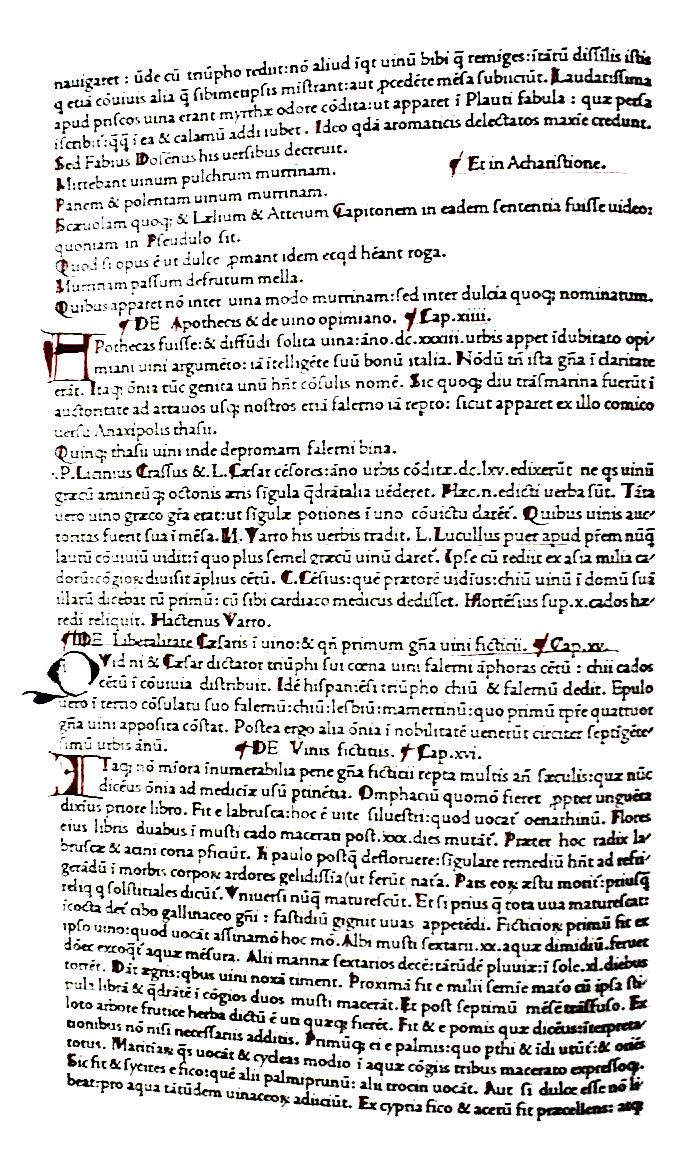 nauigaret : ūde cū triūpho redιιt:nō aliud īqt uinū bibi q̄ remiges:ītātū diſſīlis iſtis
q etiā cōuiuis alia q̄ ſibimetipſis miſtrant:aut ꝓcedēte mēſa ſubiiciūt. Laudatiſſima
apud priſcos uina erant myrrhæ odore cōdita:ut apparet ī Plauti fabula : quæ perſa
īſcribit:q̄q̄ ī ea & calamū addi iubet . Ideo qdā aromaticis delectatos maxīe credunt.
Sed Fabius Doſēnus his uerſibus decreuit.
Mittebant uinum pulchrum murrinam. ¶ Et in Achariſtione.
Panem & polentam uinum murrinam.
Scæuolam quoq; & Lælium & Atteium Capitonem in eadem ſententia fuiſſe uideo:
quoniam in Pſeudulo ſit.
Quod ſi opus ē ut dulce ꝓmant idem ecqd hēant roga.
Murrinam paſſum defrutum mella.
Quibus apparet nō inter uina modo murrinam:ſed inter dulcia quoq; nominatum.
¶ DE Apothecis & de uino opimiano. ¶ Cap.xiiii.
APothecas fuiſſe:& diffūdi ſolita uina:āno.dc.xxxiii.urbis appet īdubitato opi/
miani uini argumēto: iā ītelligēte ſuū bonū italia. Nōdū tn̄ iſta gn̄a ī claritate
erāt. Itaq; ōnia tūc genita unū hn̄t cōſulis nomē. Sic quoq; diu trāſmarina fuerūt ī
auctoritate ad attauos uſq; noſtros etiā falerno iā repto: ſicut apparet ex illo comico
uerſu Anaxipolis thaſii.
Quinq; thaſii uini inde depromam falerni bina.
.P.Licinius Craſſus &.L.Cæſar cēſores:āno urbis cōditæ.dc.lxv.edixerūt ne qs uinū
græcū amineūq; octonis æris ſīgula q̄drātalia uēderet. Hæc.n.edicti uerba ſūt. Tāta
uero uino græco gr̄a erat:ut ſīgulæ potiones ī uno cōuictu darēt. Quibus uinis auc/
toritas fuerit ſua ī mēſa.M. Varro his uerbis tradit. L.Lucullus puer apud pr̄em nūq̄
lautū cōuiuiū uidit:ī quo plus ſemel græcū uinū daret. Ipſe cū rediit ex aſia milia ca/
dorū:cōgioꝝ diuiſit āplius cētū. C.Cēſius:quē prætorē uidīus:chiū uinū ī domū ſuā
illatū dicebat tū primū: cū ſibi cardiaco medicus dediſſet. Hortēſius ſup.x.cados hæ/
redi reliquit. Hactenus Varro.
¶DE Liberalitate Cæſaris ī uino:& qn̄ primum gn̄a uini ficticii. ¶ Cap.xv.
QVid ni & Cæſar dictator triūphi ſui cœna uini falerni āphoras cētū : chii cados
cētū ī cōuiuia diſtribuit. Idē hiſpaniēſi triūpho chiū & falernū dedit. Epulo
uero ī tertio cōſulatu ſuo falernū:chiū:leſbiū:mamertinū:quo primū tp̄re quattuor
gn̄a uini appoſita cōſtat. Poſtea ergo alia ōnia ī nobilitatē uenerūt circiter ſeptīgēte/
ſimū urbis ānū. ¶DE Vinis fictitiis. ¶ Cap.xvi.
ITaq; nō mīora īnumerabilia pene gn̄a ficticii repta multis an̄ ſæculis:quæ nūc
dicēus ōnia ad medicīæ uſū ptinētia. Omphaciū quomō fieret ꝓpter unguēta
dixīus priore libro. Fit e labruſca:hoc ē uite ſilueſtri:quod uocāt oenanthinū. Flores
eius libris duabus ī muſti cado macerati poſt.xxx.dies mutāt. Præter hoc radix la/
bruſcæ & acini coria pficiūt. Ii paulo poſtq̄ defloruere:ſīgulare remediū hn̄t ad refri/
gerādū ī morbis corpoꝝ ardores gelidiſſīa(ut ferūt nat̄a. Pars eoꝝ æſtu morit:priuſq̄
reliq q ſolſtitiales dicūt. Vniuerſi nūq̄ matureſcūt. Et ſi prius q̄ tota uua matureſcat:
īcocta det cibo gallinaceo gn̄i : faſtidiū gignit uuas appetēdi. Ficticioꝝ primū fit ex
ipſo uino:quod uocāt aſſinamō hoc mō. Albi muſti ſextarii.xx.aquæ dimidiū.feruet
dōec excoqt aquæ mēſura. Alii marinæ ſextarios decē:tātūdē pluuiæ:ī ſole.xl.diebus
torrēt. Dāt ægris:qbus uini noxā timent. Proxima fit e milii ſemīe mat̄o cū ipſa ſti/
pula librā & q̄drātē ī cōgios duos muſti macerāt. Et poſt ſeptimū mēſē trāſfuſo. Ex
loto arbore frutice herba dictū ē uti quæq; fierēt. Fit & e pomis quæ dicēus:īterpreta/
tionibus nō niſi neceſſariis additis. Primūq; ei e palmis:quo pthi & īdi utūt:& oriēs
totus. Maritiaꝝ q̄s uocāt & cydeas modio ī aquæ cōgiis tribus macerato expreſſoq;.
Sic fit & ſycites e fico:quē alii palmiprunū: alii trocin uocāt. Aut ſi dulce eſſe nō li/
beat:pro aqua tātūdem uinaceoꝝ adiiciūt. Ex cypria fico & acetū fit præcellens: atq;